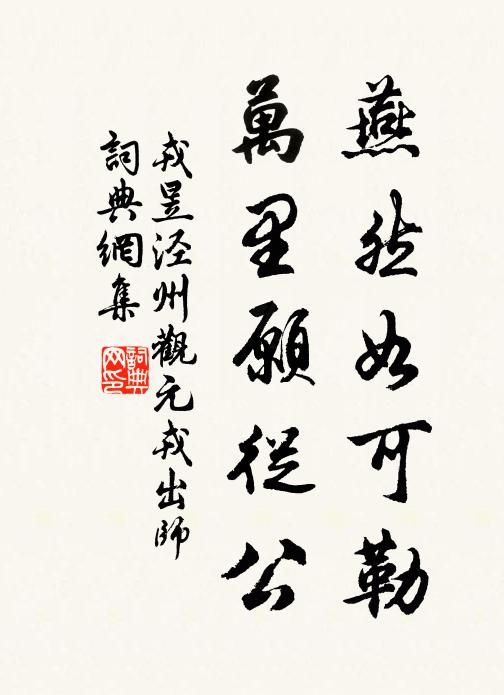 燕然如可勒
萬里願從公
戎昱涇州觀元戎出師
詞典網集
詞典网印